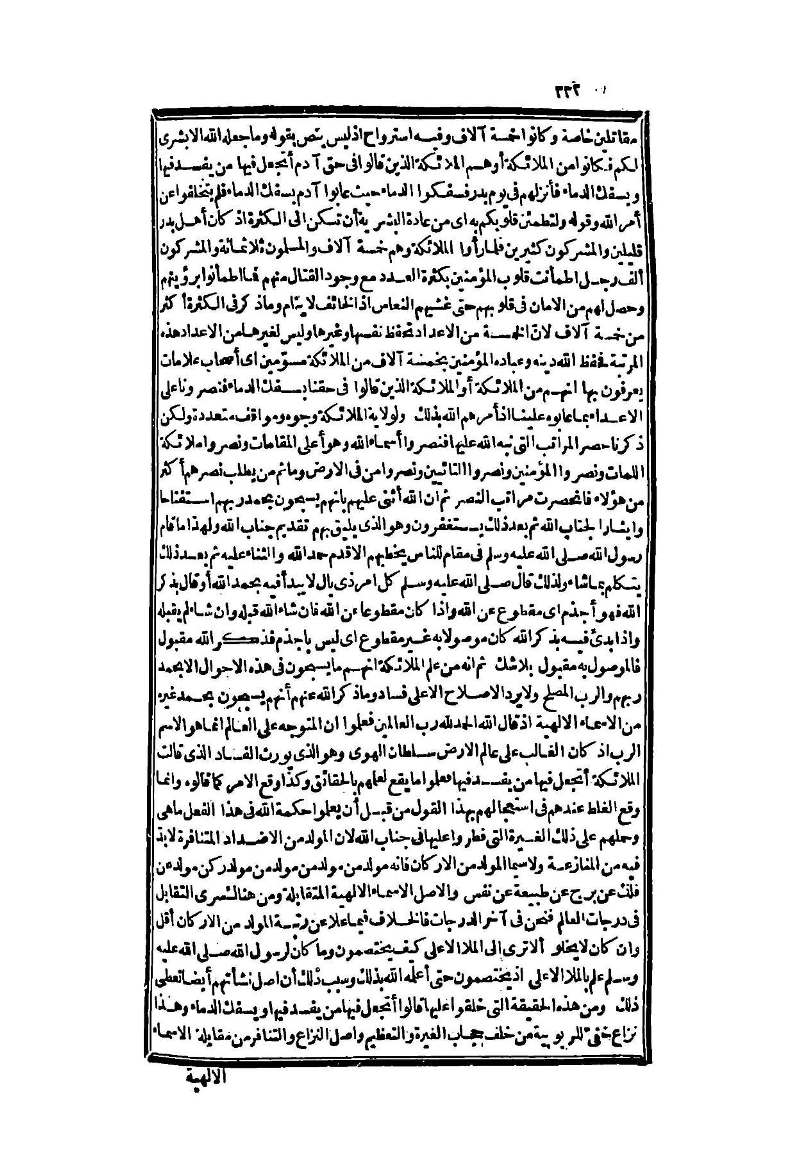 ٣٣٢
مقاتلين خاصة وكانوا خمسة آلاف وفيه استرواح اذ ليس بنص بقوله وما جعله الله الا بشرى
لكم فكانوا من الملائكة أو هم الملائكة الذين قالوا فى حق آدم أتجعل فيها من يفسد فيها
ويسفك الدماء فأنزلهم فى يوم بدر فسفكوا الدماء حيث عابوا آدم بسفك الدماء فلم يتخلفوا عن
أمر الله وقوله ولتطمئن قلوبكم به اى من عادة البشرية أن تسكن الى الكثرة اذ كان أهل بدر
قليلين والمشركون كثيرين فلما رأوا الملائكة وهم خمسة آلاف والمسلمون ثلاثمائة والمشركون
ألف رجل اطمأنت قلوب المؤمنين بكثرة العدد مع وجود القتال منهم فما اطمأنوا برؤيتهم
وحصل لهم من الامان فى قلوبهم حتى غشيهم النعاس اذ الخائف لا ينام وما ذكر فى الكثرة أكثر
من خمسة آلاف لان الخمسة من الاعداد تحفظ نفسها وغيرها وليس لغيرها من الاعداد هذه
المرتبة فحفظ الله دينه وعباده المؤمنين بخمسة آلاف من الملائكة مسوّمين اى أصحاب علامات
يعرفون بها انهم من الملائكة أو الملائكة الذين قالوا فى حقنا بسفك الدماء فنصرونا على
الاعداء بما عابوه علينا اذ أمرهم الله بذلك ولولاية الملائكة وجوه ومواقف متعددة ولكن
ذكرنا حصر المراتب التى نبه الله عليها فنصروا أسماء الله وهو أعلى المقامات ونصروا ملائكة
اللمات ونصروا المؤمنين ونصروا التائبين ونصروا من فى الارض وما ثم من يطلب نصرهم أكثر
من هؤلاء فانحصرت مراتب النصر ثم ان الله أثنى عليهم بانهم يسبحون بحمد ربهم استفتاحا
وايثارا لجناب الله ثم بعد ذلك يستغفرون وهو الذى يليق بهم تقديم جناب الله ولهذا ما قام
رسول الله صلى الله عليه وسلم فى مقام للناس يخطبهم الا قدم حمد الله والثناء عليه ثم بعد ذلك
يتكلم بما شاء ولذلك قال صلى الله عليه وسلم كل امر ذى بال لا يبدأ فيه بحمد الله أو قال بذكر
الله فهو أجذم اى مقطوع عن الله واذا كان مقطوعا عن الله فان شاء الله قبله وان شاء لم يقبله
واذا بدئ فيه بذكر الله كان موصولا به غير مقطوع اى ليس باجذم فذكر الله مقبول
فالموصول به مقبول بلا شك ثم انه من علم الملائكة انهم ما يسبحون فى هذه الاحوال الا بحمد
ربهم والرب المصلح ولا يرد الاصلاح الا على فساد وما ذكر الله عنهم أنهم يسبحون بحمد غيره
من الاسماء الالهية اذ قال الله الحمد لله رب العالمين فعلموا ان المتوجه على العالم انما هو الاسم
الرب اذ كان الغالب على عالم الارض سلطان الهوى وهو الذى يورث الفساد الذى قالت
الملائكة أتجعل فيها من يفسد فيها فعلموا ما يقع لعلمهم بالحقائق وكذا وقع الامر كما قالوه وانما
وقع الغلط عندهم فى استعجالهم بهذا القول من قبل أن يعلموا حكمة الله فى هذا الفعل ما هى
وحملهم على ذلك الغيرة التى فطروا عليها فى جناب الله لان المولد من الاضداد المتنافرة لا بدّ
فيه من المنازعة ولا سيما المولد من الاركان فانه مولد من مولد من مولد من مولد ركن مولد عن
فلك عن برج عن طبيعة عن نفس والاصل الاسماء الالهية المتقابلة ومن هنا لسرى التقابل
فى درجات العالم فنحن فى آخر الدرجات فالخلاف فيما علا عن رتبة المولد من الاركان أقل
وان كان لا يخلو ألا ترى الى الملا الاعلى كيف يختصمون وما كان لرسول الله صلى الله عليه
وسلم علم بالملا الاعلى اذ يختصمون حتى أعلمه الله بذلك وسبب ذلك أن اصل نشأتهم أيضا تعطى
ذلك ومن هذه الحقيقة التى خلقوا عليها قالوا أتجعل فيها من يفسد فيها ويسفك الدماء وهذا
نزاع خفىّ للربوبية من خلف حجاب الغيرة والتعظيم واصل النزاع والتنافر من مقابلة الاسماء
الالهية